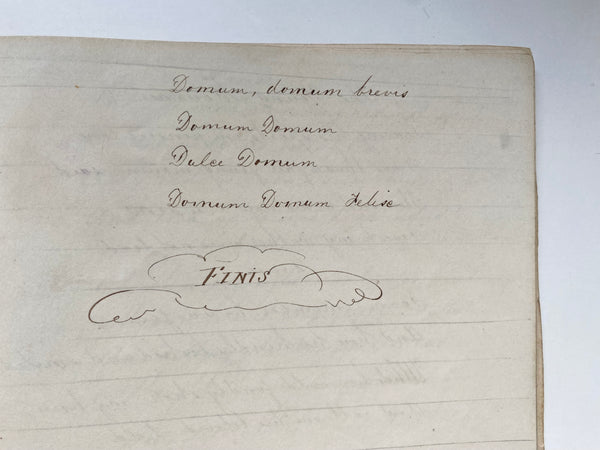 Domum, domum brevis
Domum Domum
Dulce Domum
Domum Domum Felise
FINIS